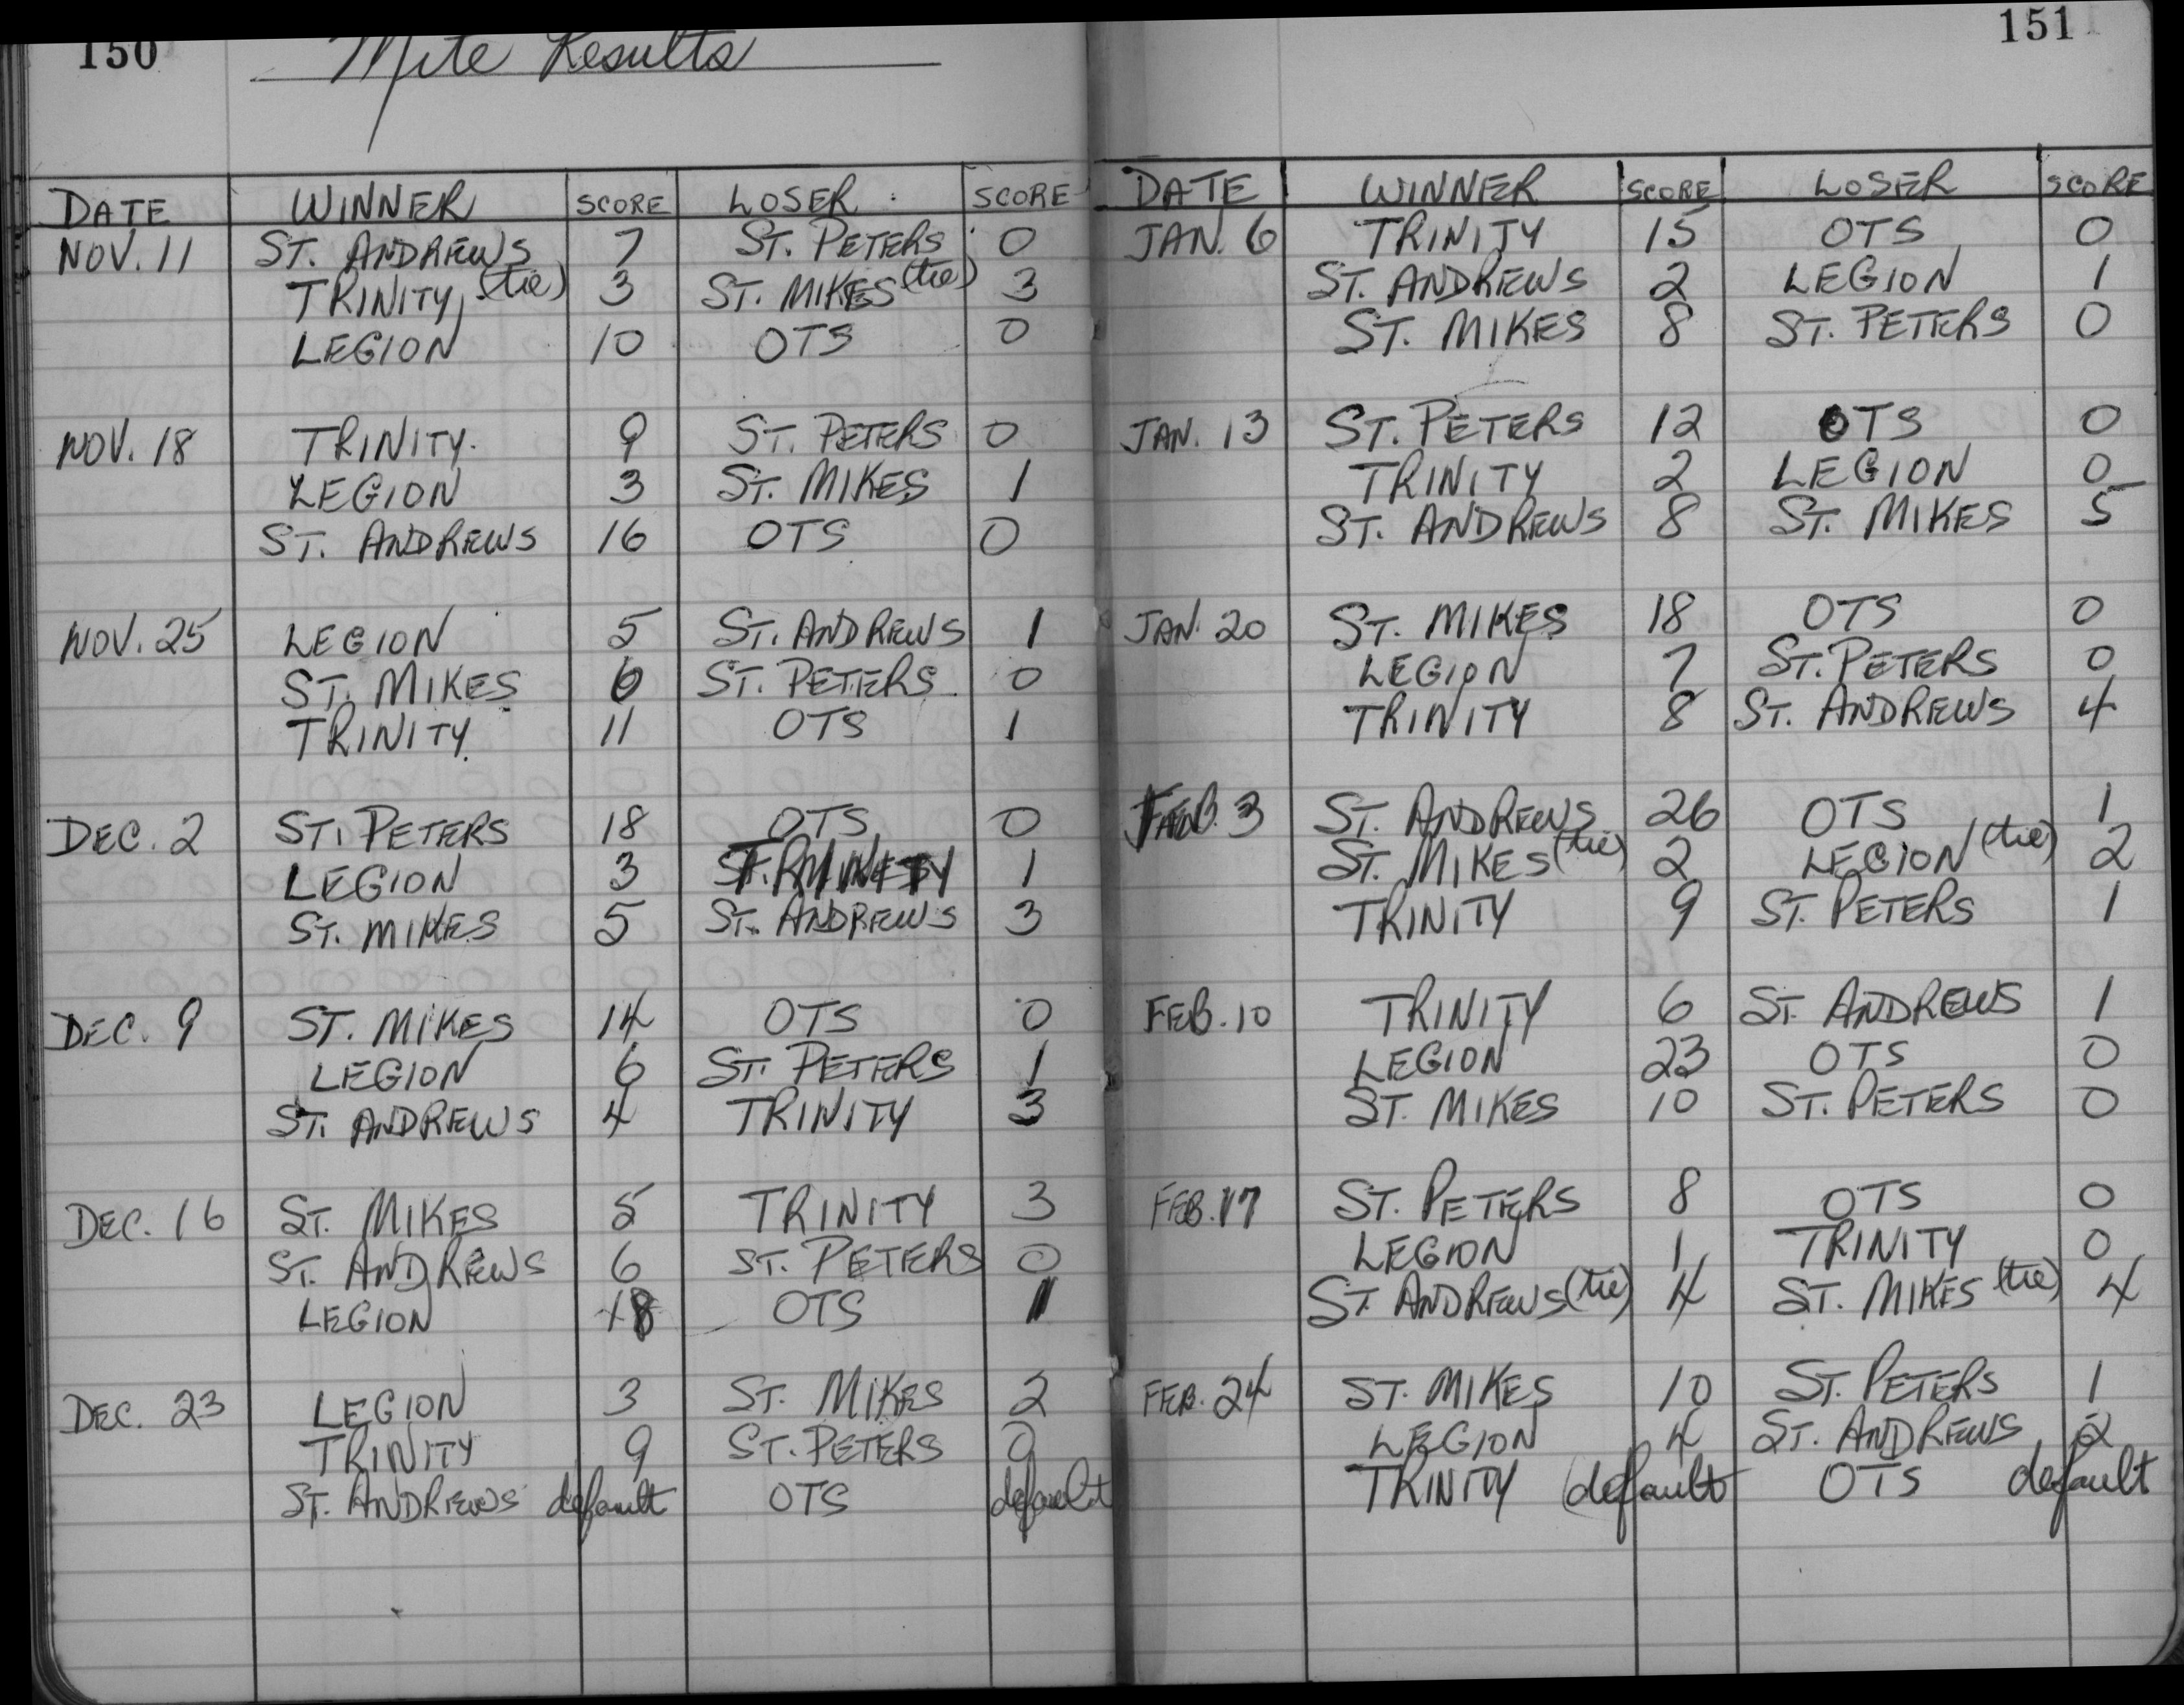 150
Mite Results
DATE WINNER SCORE LOSER SCORE
NOV. 11 ST. ANDREWS 7 ST. PETERS 0
TRINITY (tie) 3 ST. MIKES (tie) 3
LEGION 10 OTS 0
NOV. 18 TRINITY. 9 ST. PETERS 0
LEGION 3 ST. MIKES 1
ST. ANDREWS 16 OTS 0
NOV. 25 LEGION 5 ST. ANDREWS 1
ST. MIKES 6 ST. PETERS 0
TRINITY 11 OTS 1
DEC. 2 ST. PETERS 18 OTS 0
LEGION 3 TRINITY 1
ST. MIKES 5 ST. ANDREWS 3
DEC. 9 ST. MIKES 14 OTS 0
LEGION 6 ST. PETERS 1
ST. ANDREWS 4 TRINITY 3
DEC. 16 ST. MIKES 5 TRINITY 3
ST. ANDREWS 6 ST. PETERS 0
LEGION 18 OTS 1
DEC. 23 LEGION 3 ST. MIKES 2
TRINITY 9 ST. PETERS 0
ST. ANDREWS default OTS default
151
DATE WINNER SCORE LOSER SCORE
JAN. 6 TRINITY 15 OTS 0
ST. ANDREWS 2 LEGION 1
ST. MIKES 8 ST. PETERS 0
JAN. 13 ST. PETERS 12 OTS 0
TRINITY 2 LEGION 0
ST. ANDREWS 8 ST. MIKES 5
JAN. 20 ST. MIKES 18 OTS 0
LEGION 7 ST. PETERS 0
TRINITY 8 ST. ANDREWS 4
FEB. 3 ST. ANDREWS 26 OTS 1
ST. MIKES (tie) 2 LEGION (tie) 2
TRINITY 9 ST. PETERS 1
FEB. 10 TRINITY 6 ST. ANDREWS 1
LEGION 23 OTS 0
ST. MIKES 10 ST. PETERS 0
FEB. 17 ST. PETERS 8 OTS 0
LEGION 1 TRINITY 0
ST. ANDREWS (tie) 4 ST. MIKES (tie) 4
FEB. 24 ST. MIKES 10 ST. PETERS 1
LEGION 4 ST. ANDREWS 2
TRINITY (default) OTS default